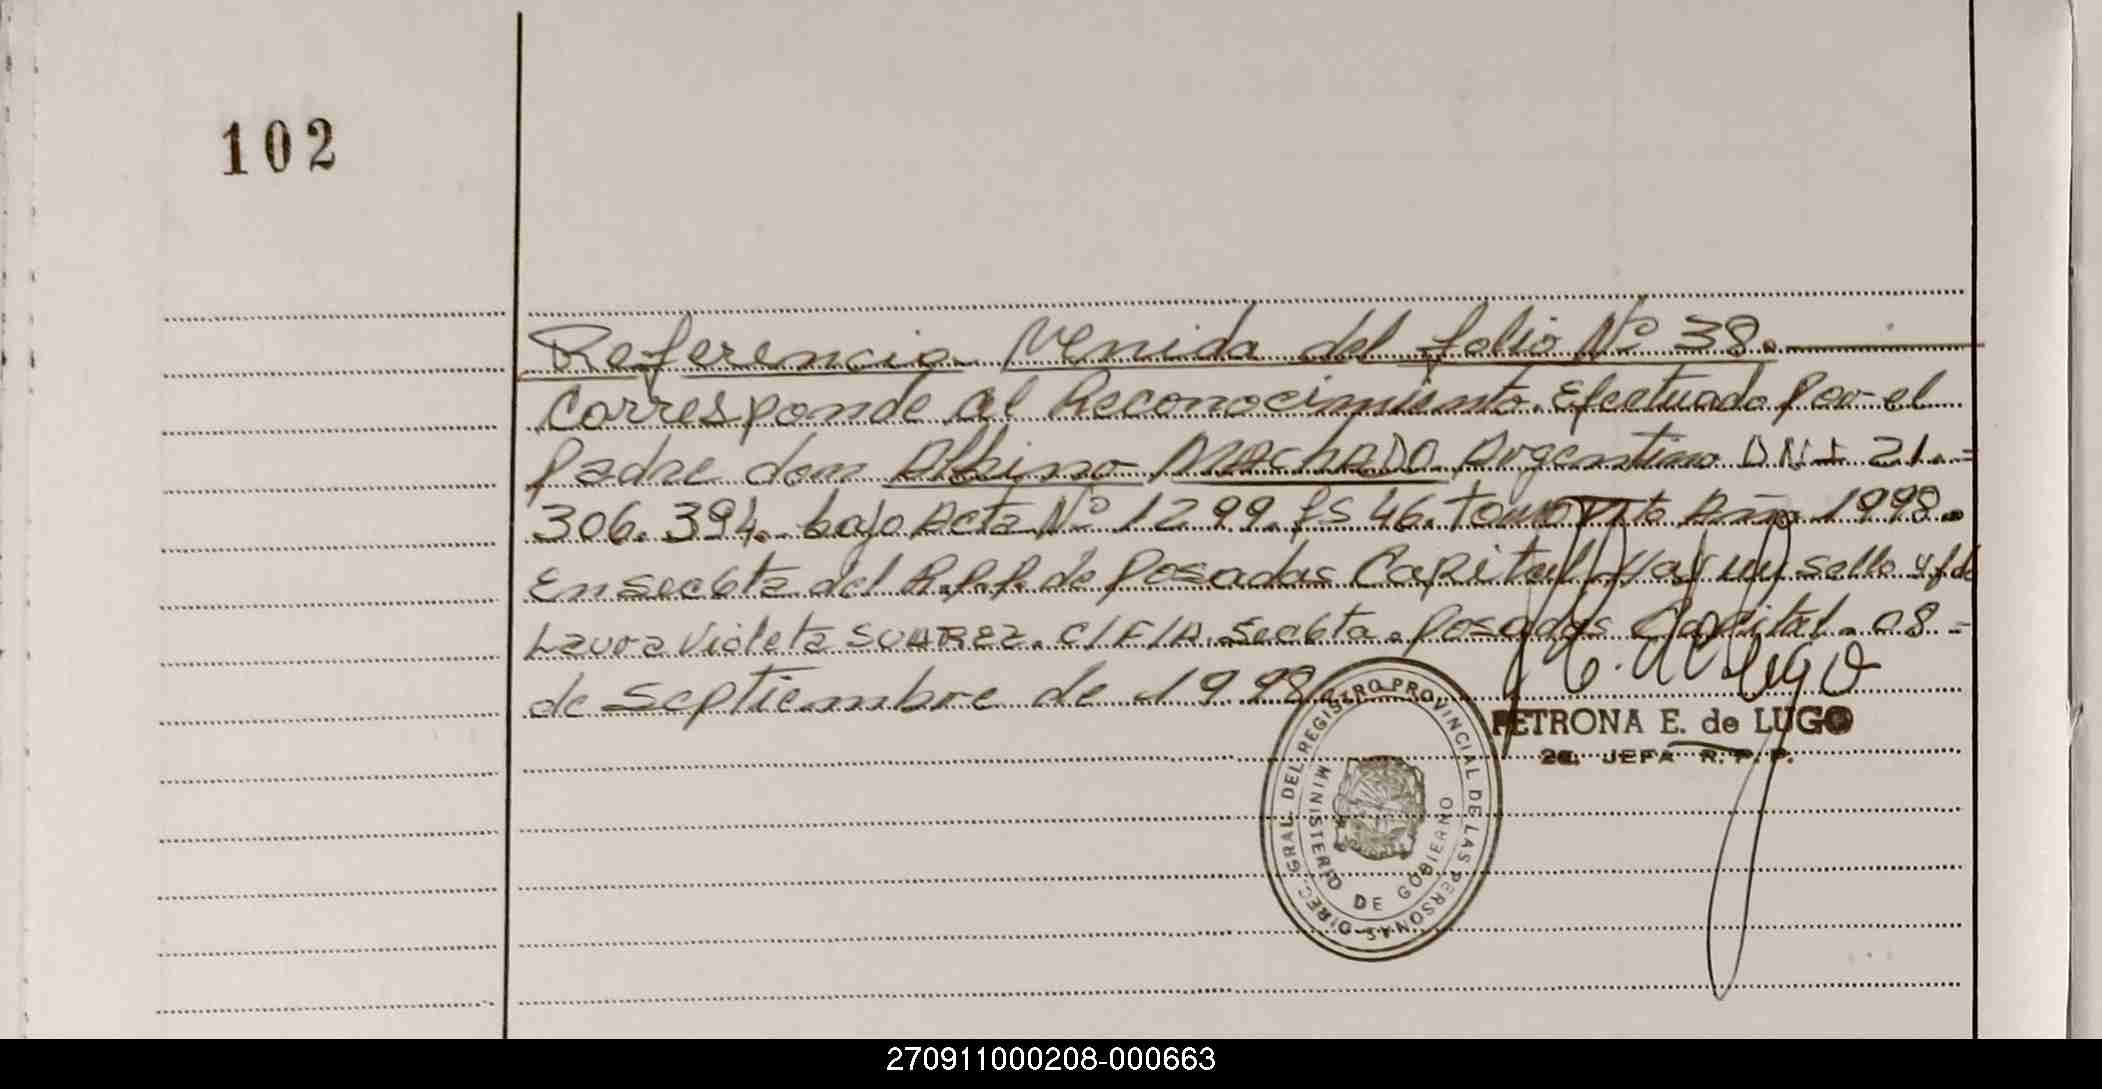 102
Referencia Venida del folio Nº 38.
Corresponde al Reconocimiento. Efectuado por el
padre don Albino MAchADO Argentino DNI 21.=
306.394. bajo Acta Nº 1299. fs 46. tomo Año 1998.
En secbta del R.P.P. de Posadas Capital Hay un sello y f. de
Laura Violeta SUAREZ. C/F/A. Secbta. Posadas Capital. 08 =
de Septiembre de 1998
PETRONA E. de LUGO
2a. JEFA R. P. P.
DIREC. GRAL. DEL REGISTRO PROVINCIAL DE LAS PERSONAS
MINISTERIO DE GOBIERNO
270911000208-000663